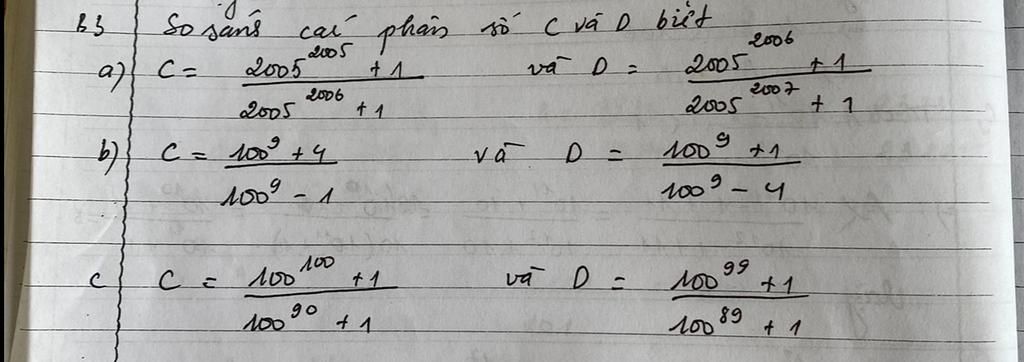 B3 So sánh các phân số C và D biết
a) C = (2005^2005 + 1)/(2005^2006 + 1) và D = (2005^2006 + 1)/(2005^2007 + 1)
b) C = (100^9 + 4)/(100^9 - 1) và D = (100^9 + 1)/(100^9 - 4)
c C = (100^100 + 1)/(100^90 + 1) và D = (100^99 + 1)/(100^89 + 1)